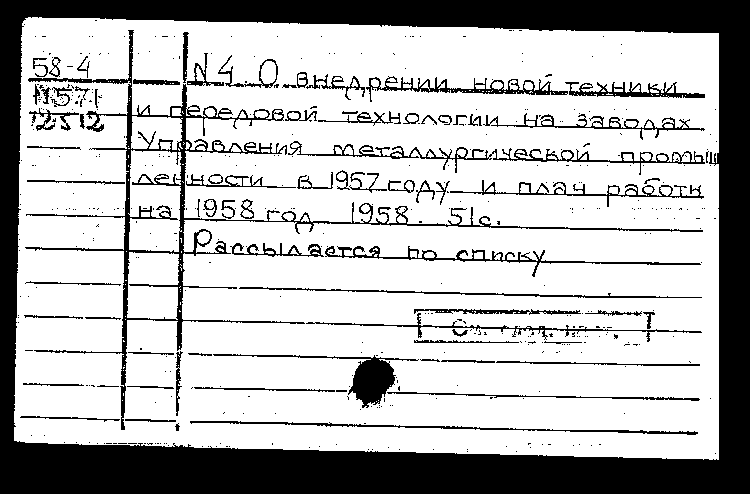 58-4
N571
12512
N 4. О внедрении новой техники
и передовой технологии на заводах
Управления металлургической промыш
ленности в 1957 году и план работы
на 1958 год. 1958. 51с.
Рассылается по списку
См. след.